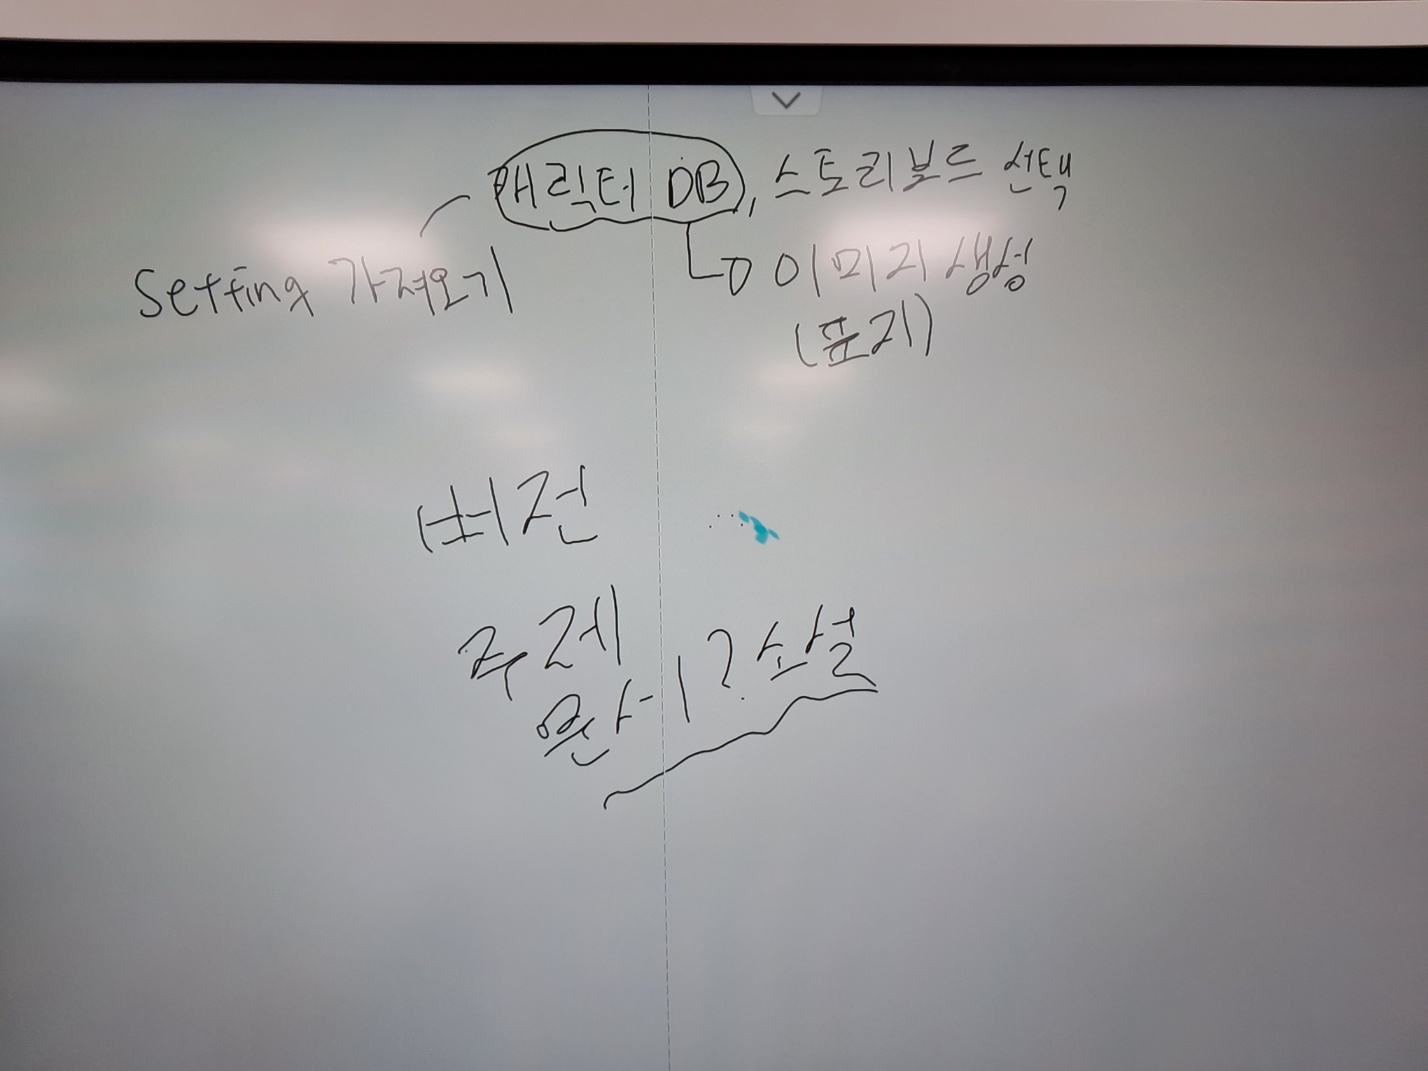 캐릭터 DB, 스토리보드 선택
Setting 가져오기
이미지 생성
(표지)
버전
주제
? 소설